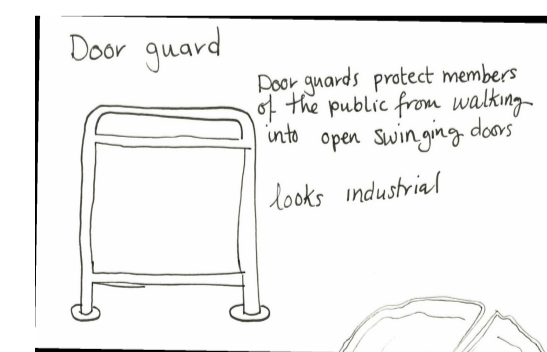 Door guard
Door guards protect members
of the public from walking
into open swinging doors
looks industrial